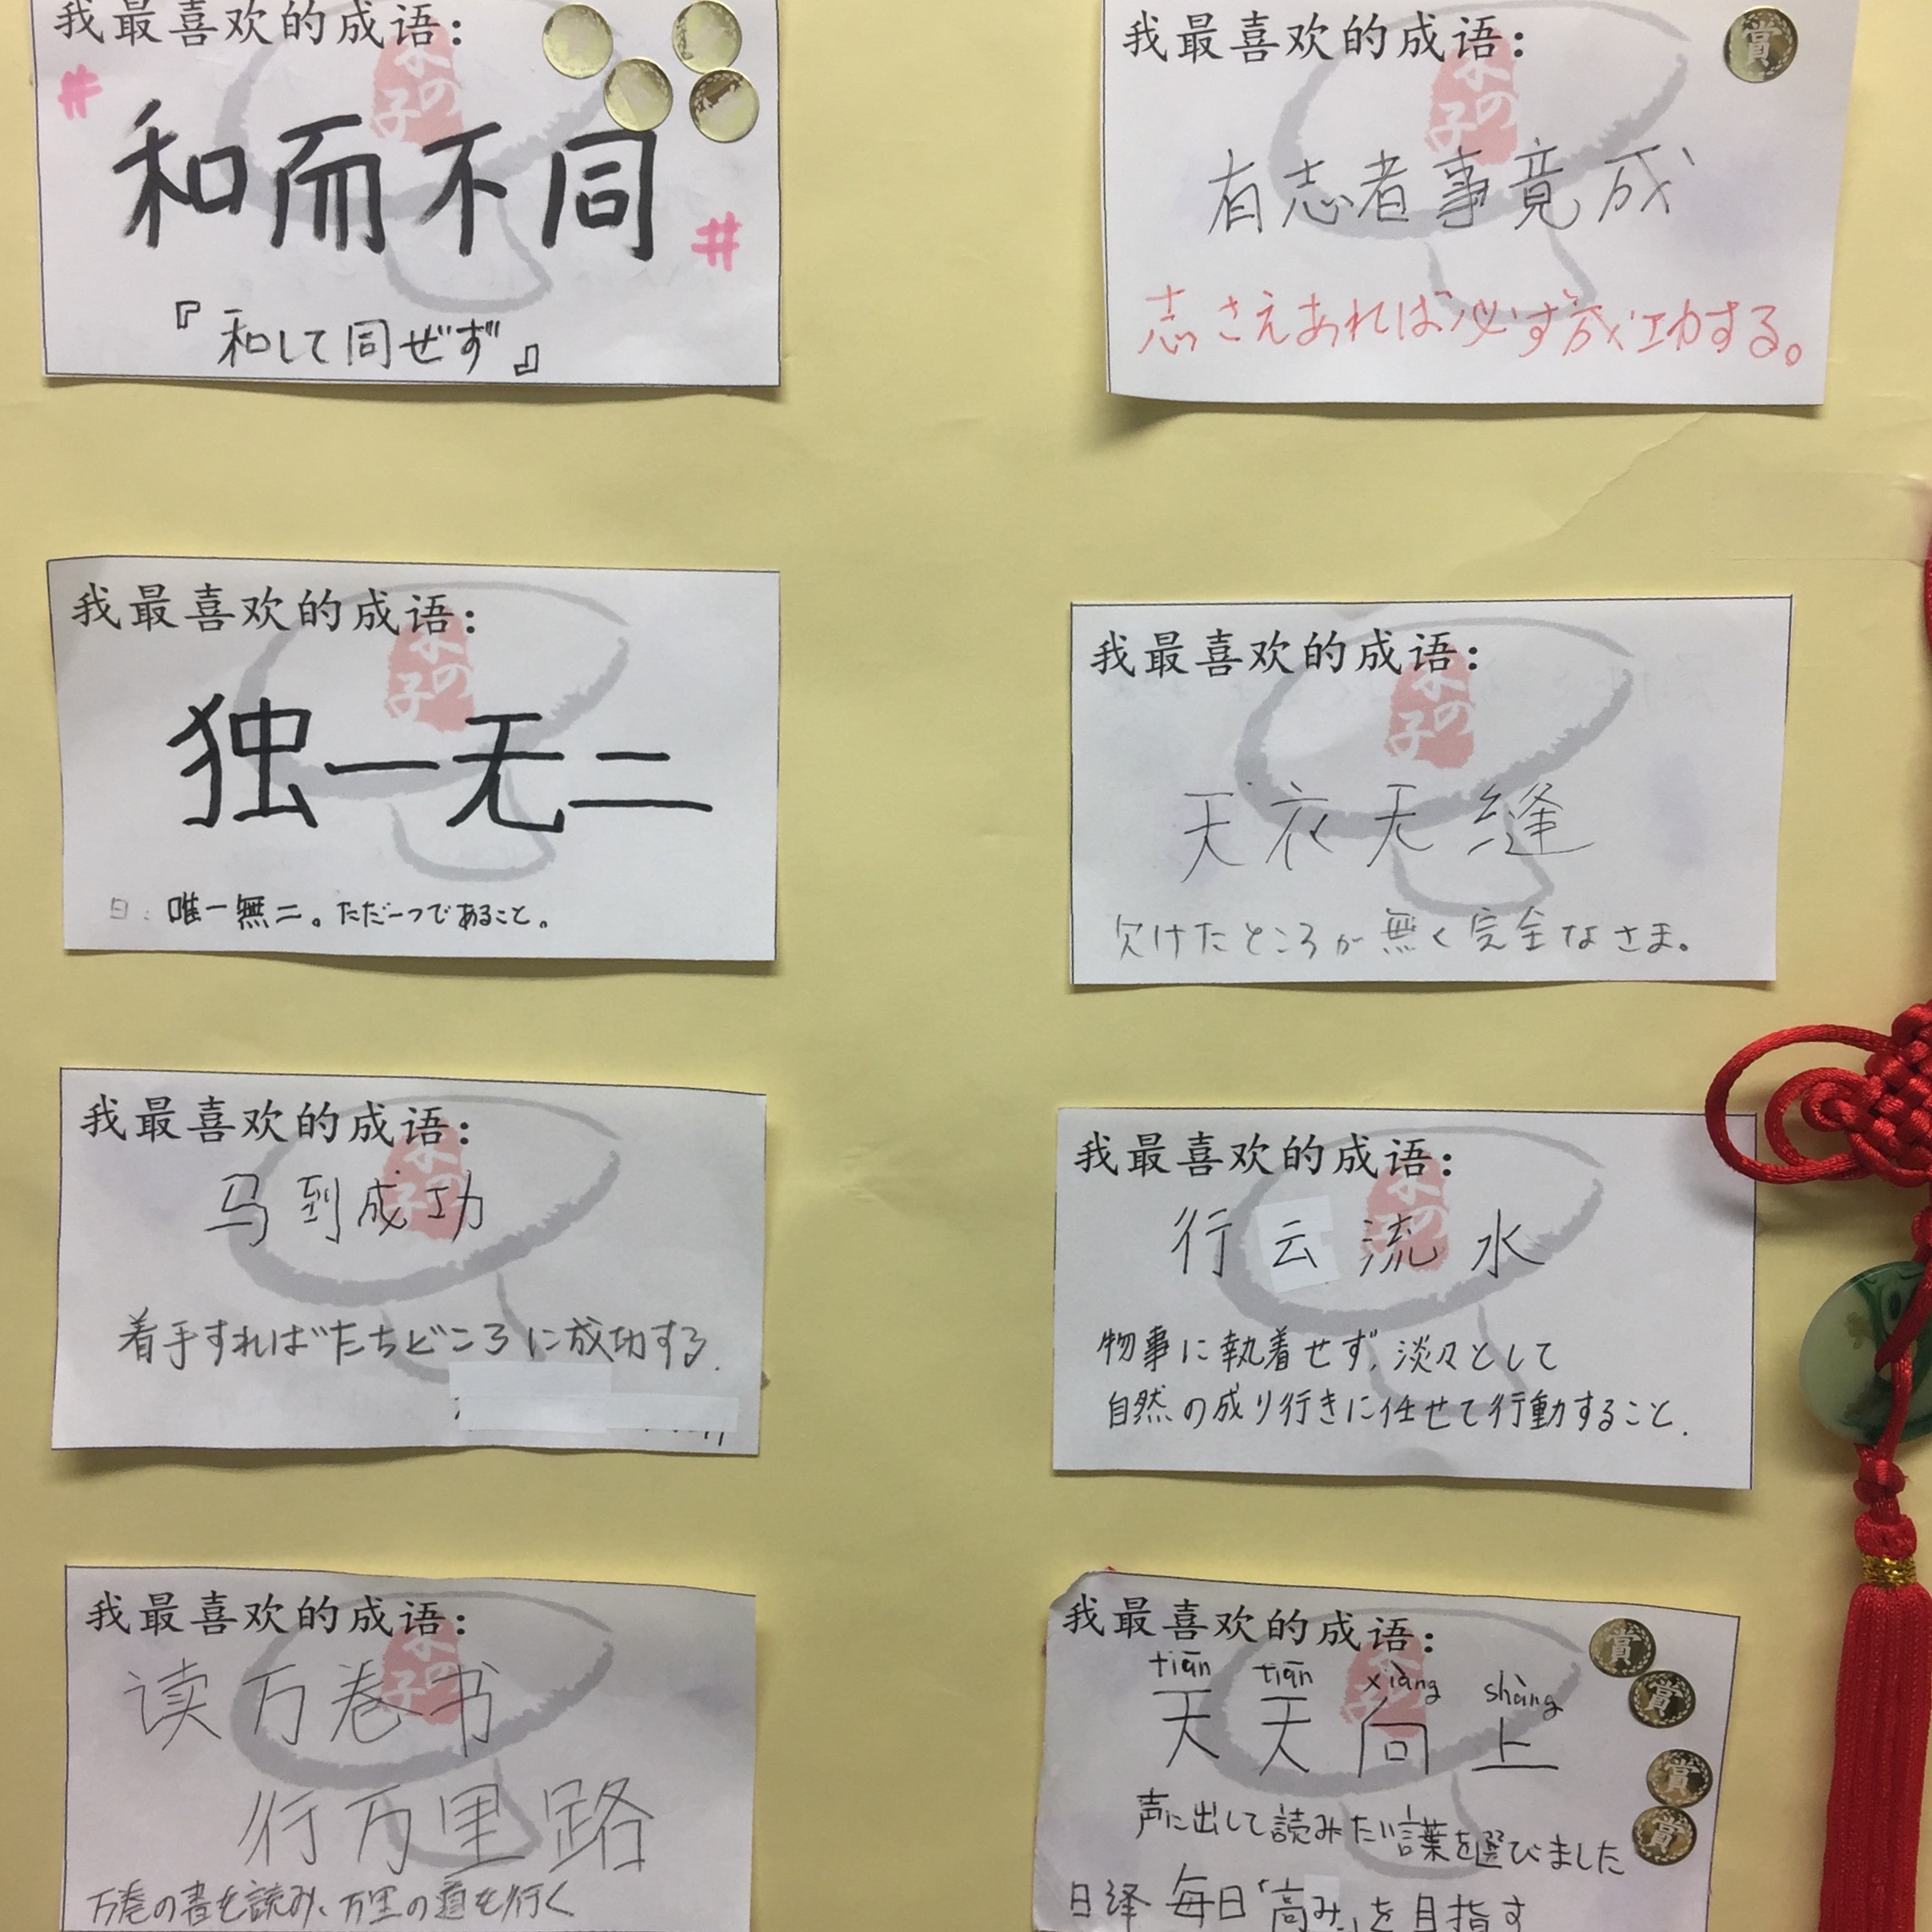 我最喜欢的成语：
和而不同
『和して同ぜず』
我最喜欢的成语：
賞
有志者事竟成
志さえあれば必ず成功する。
我最喜欢的成语：
独一无二
日：唯一無二。ただ一つであること。
我最喜欢的成语：
天衣无缝
欠けたところが無く完全なさま。
我最喜欢的成语：
马到成功
着手すればたちどころに成功する.
我最喜欢的成语：
行云流水
物事に執着せず、淡々として
自然の成り行きに任せて行動すること.
我最喜欢的成语：
读万卷书
行万里路
万巻の書を読み、万里の道を行く
我最喜欢的成语：
tiān tiān xiàng shàng
天天向上
賞
賞
賞
賞
声に出して読みたい言葉を選びました
日译 毎日「高み」を目指す